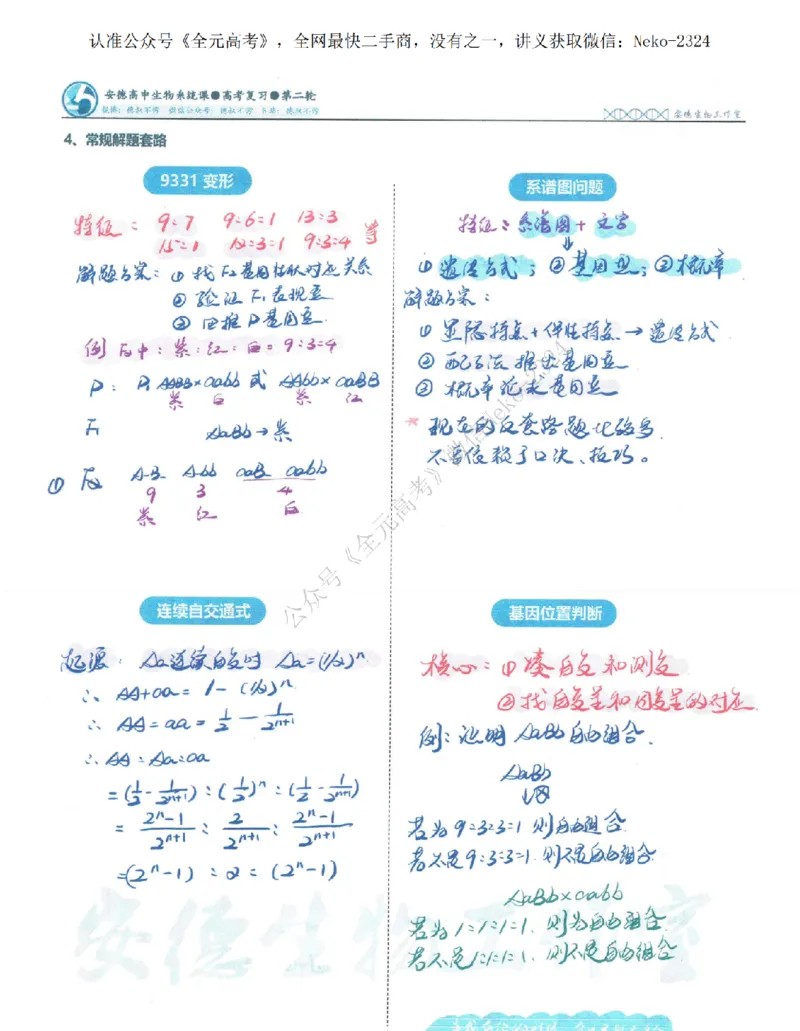 认准公众号《全元高考》，全网最快二手商，没有之一，讲义获取微信：Neko-2324
安德高中生物系统课●高考复习●第二轮
安德生物工作室
4、常规解题套路
9331 变形
特征： 9:7 9:6:1 13:3
15:1 12:3:1 9:3:4 等
解题方案：① 找F₂基因性状对应关系
② 验证 F₁表现型
③ 回推 P基因型
例 F₂中：紫：红：白 = 9:3:4
P： AABB×aabb 或 AAbb×aaBB
紫 白 紫 红
F₁ AaBb→紫
① F₂ A-B- A-bb aaB- aabb
9 3 4
紫 红 白
系谱图问题
特征：系谱图+文字
①遗传方式；②基因型；③概率
解题方案：
① 显隐特点+伴性特点→遗传方式
② 配子法推出基因型
③ 概率
* 现在的反套路题比较多
不要依赖于口决、技巧。
公众号《全元高考》微信Neko-2324
连续自交通式
起源：Aa连续自交时 Aa=(1/2)ⁿ
∴ AA+aa= 1-(1/2)ⁿ
∴ AA=aa= 1/2 - 1/2ⁿ⁺¹
∴ AA:Aa:aa
=(1/2-1/2ⁿ⁺¹):(1/2)ⁿ:(1/2-1/2ⁿ⁺¹)
= 2ⁿ-1/2ⁿ⁺¹ : 2/2ⁿ⁺¹ : 2ⁿ-1/2ⁿ⁺¹
=(2ⁿ-1):2:(2ⁿ-1)
基因位置判断
核心：① 凑自交和测交
②找自交呈和测交呈的对应
例：证明 AaBb自由组合.
AaBb
↓⊗
若为9:3:3:1 则自由组合
若不是9:3:3:1.则不是自由组合
AaBb×aabb
若为1:1:1:1，则为自由组合
若不是1:1:1:1，则不是自由组合
安德生物工作室